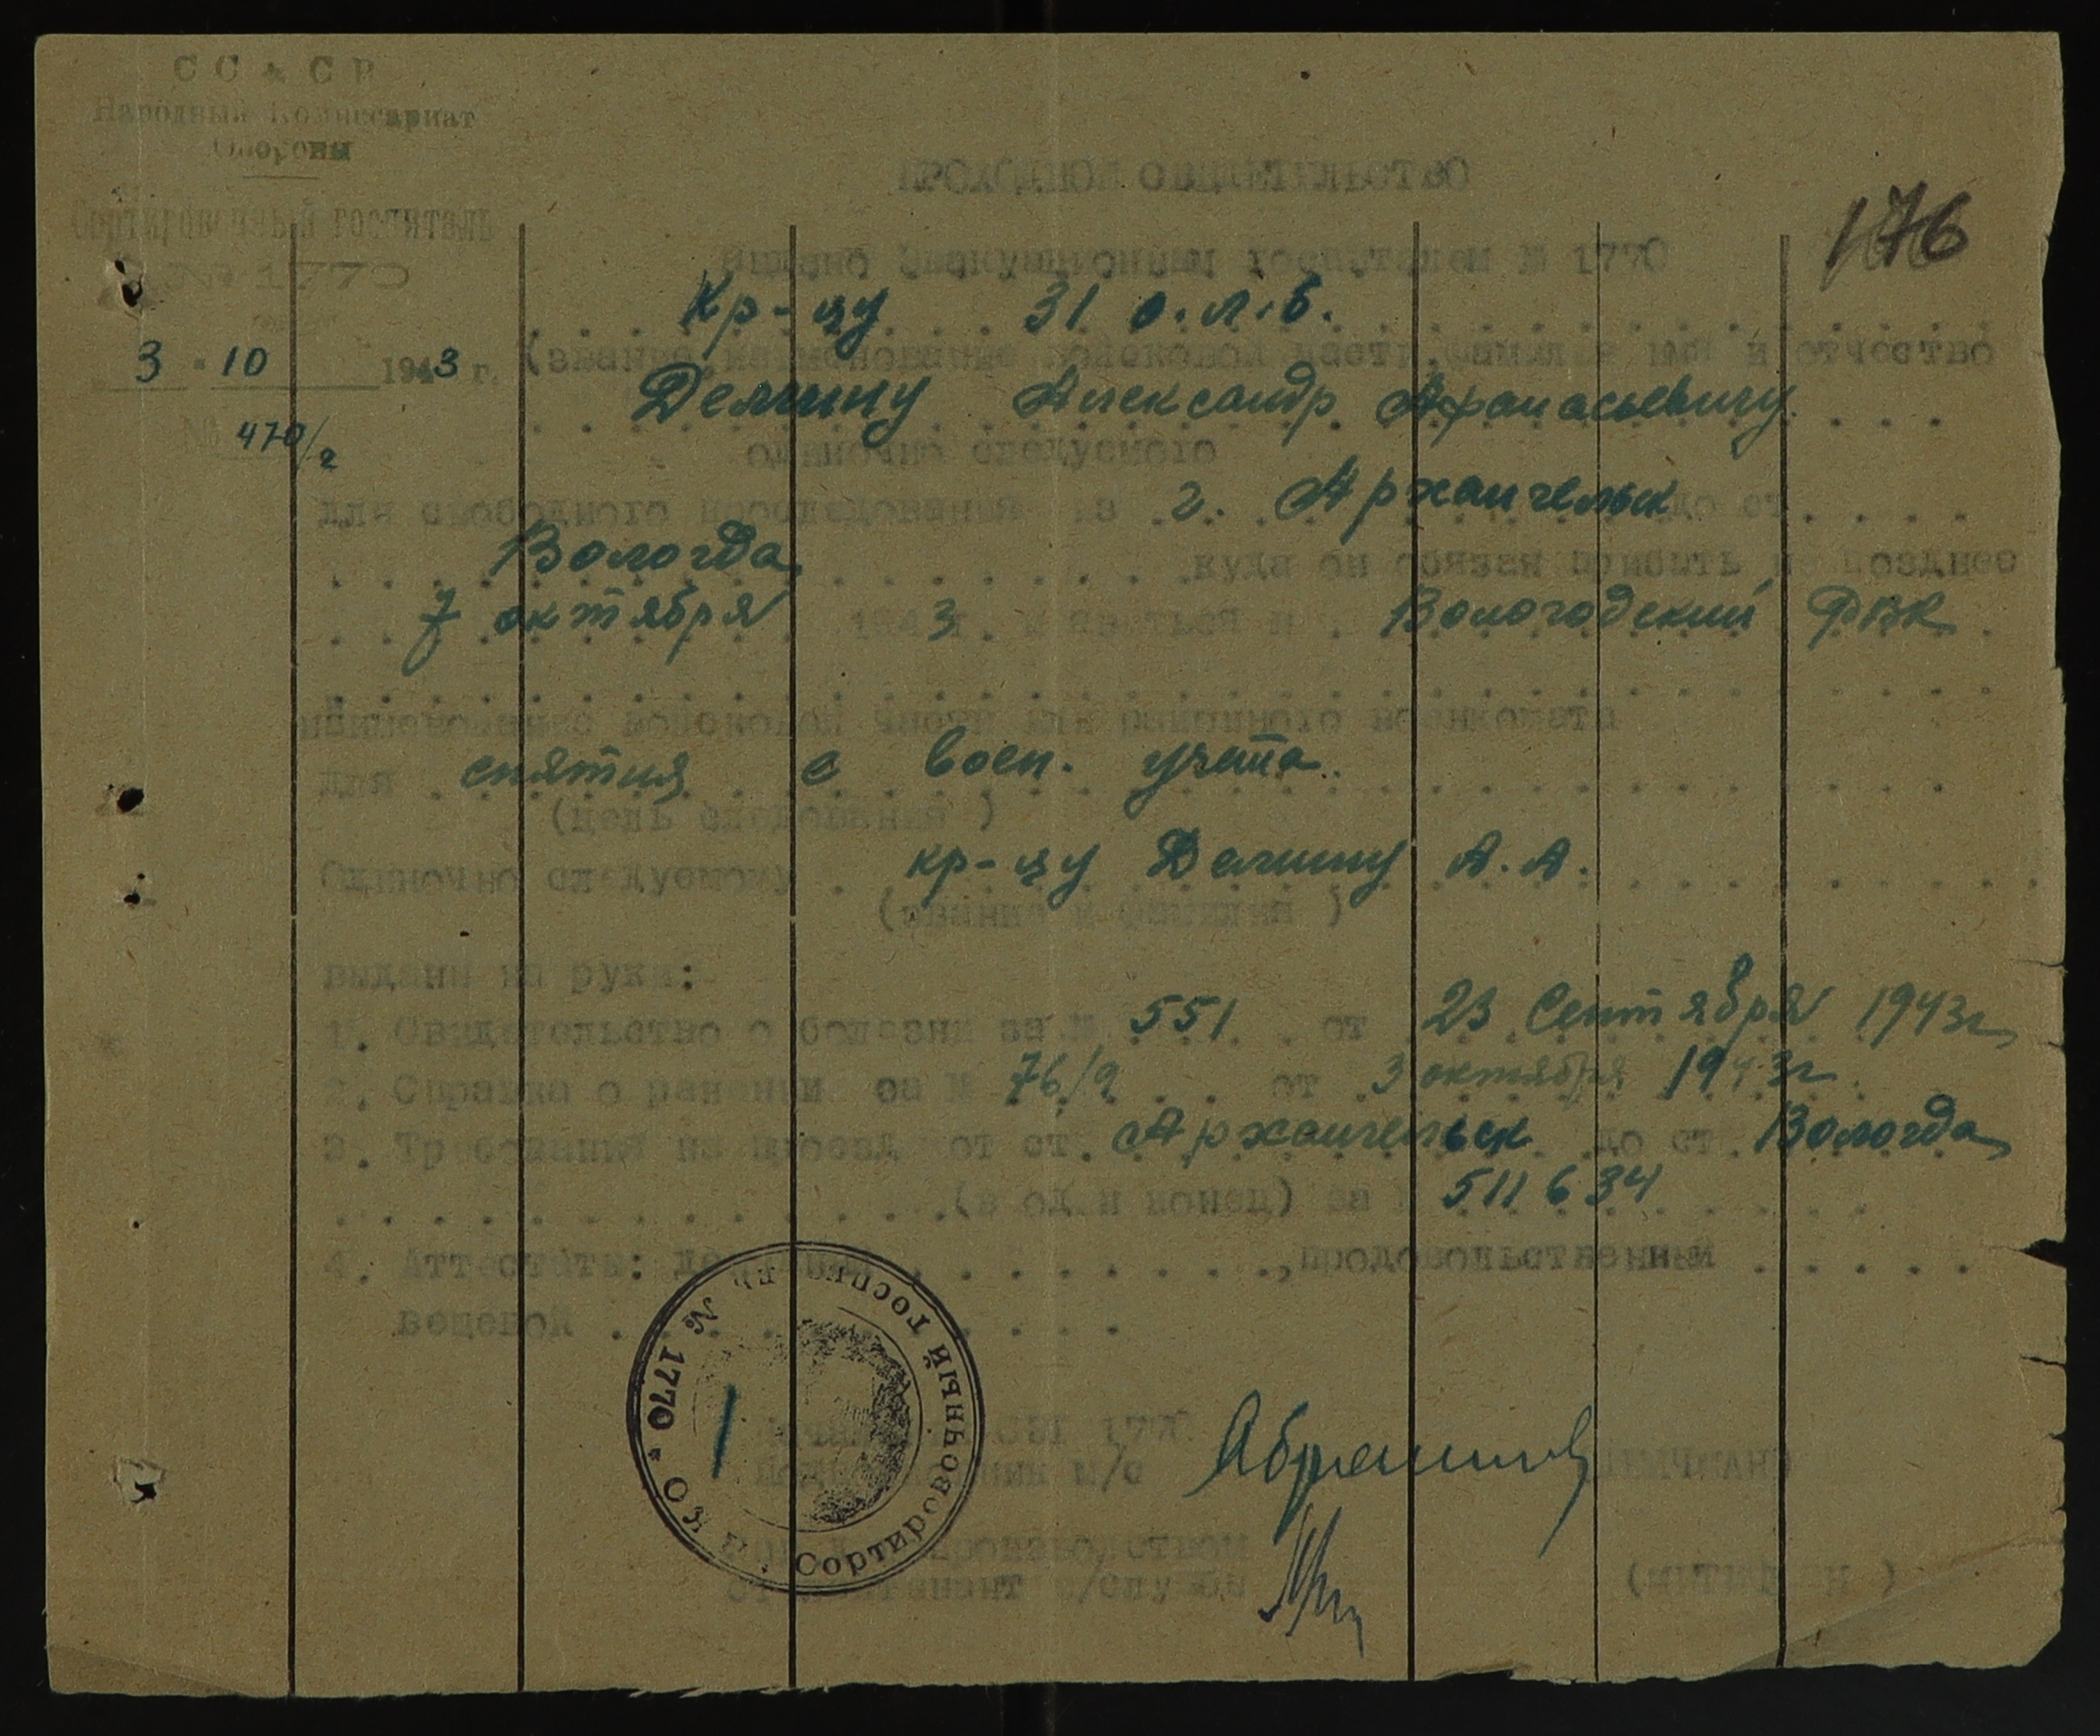 СССР
Народный Комиссариат
Обороны
Сортировочный госпиталь
№ 1770
3 " 10 1943 г.
№ 470/2
176
ПРОХОДНОЕ СВИДЕТЕЛЬСТВО
Выдано Эвакуационным госпиталем № 1770
Кр-цу 31 о.л.б.
(звание, наименование войсковой части, фамилия имя и отчество
Демину Александр Афанасьевичу
одиночно следуемого
для свободного проследования из г. Архангельск до ст.
Вологда куда он обязан прибыть не позднее
7 октября 1943 г. и явиться в Вологодский РВК
наименование войсковой части или районного военкомата
для снятия с воен. учета
(цель следования)
Одиночно следуемому кр-цу Демину А.А.
(звание и фамилия)
выдани на руки:
1. Свидетельство о болезни за № 551 от 23 Сентября 1943г
2. Справка о ранении за № 76/9 от 3 октября 1943г.
3. Требования на проезд от ст. Архангельск до ст. Вологда
(в один конец) за 511634
4. Аттестати: денежный , продовольственный
вещевой
СЭГ 1770
м/с
производством
лейтенант с/службы
Сортировочный госпиталь № 1770 НКО